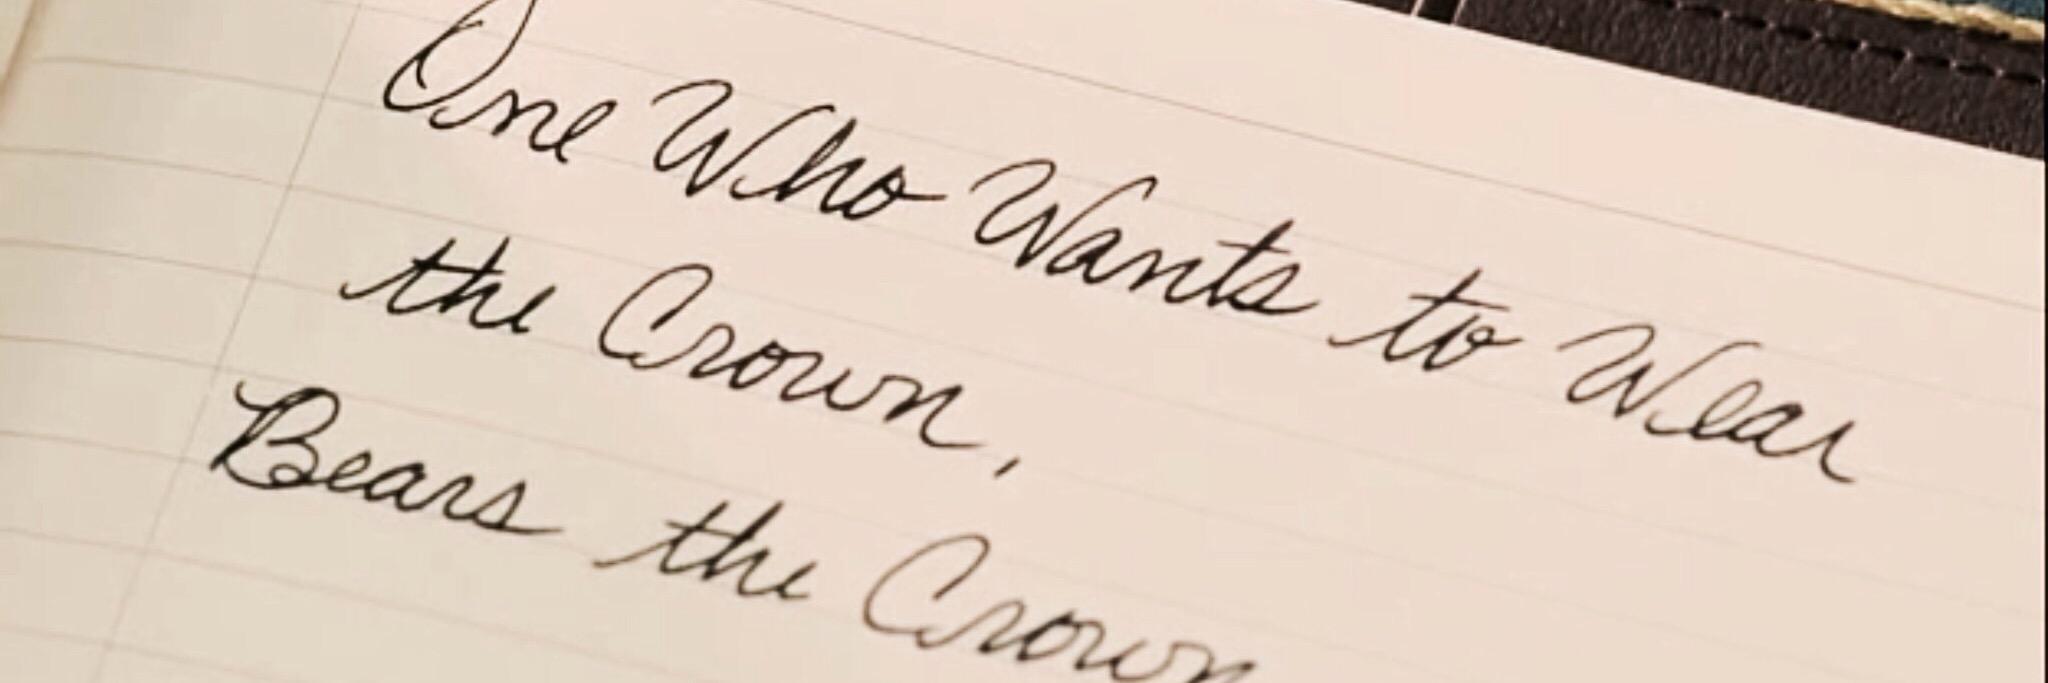 One Who Wants to Wear
the Crown,
Bears the Crown